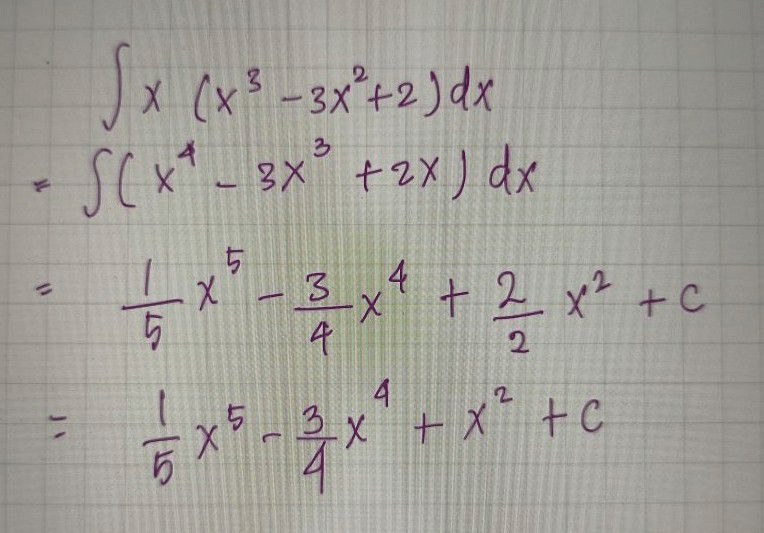 ∫ x (x³ - 3x² + 2) dx
= ∫ (x⁴ - 3x³ + 2x) dx
= 1/5 x⁵ - 3/4 x⁴ + 2/2 x² + c
= 1/5 x⁵ - 3/4 x⁴ + x² + c